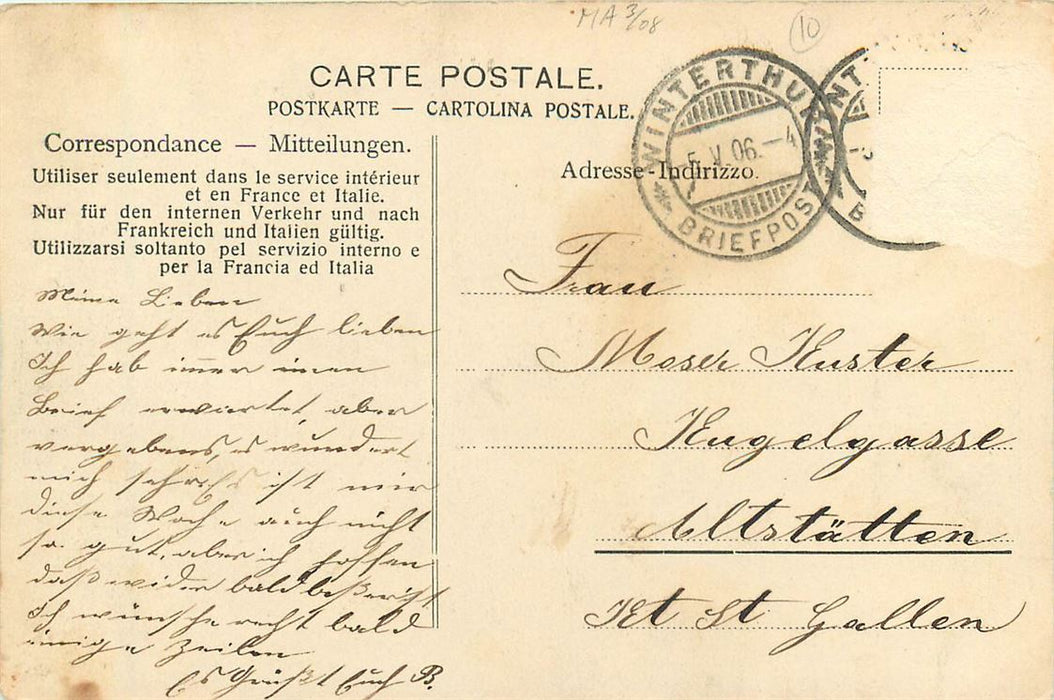 MA 3/08
10
CARTE POSTALE.
POSTKARTE — CARTOLINA POSTALE.
Correspondance — Mitteilungen.
Utiliser seulement dans le service intérieur
et en France et Italie.
Nur für den internen Verkehr und nach
Frankreich und Italien gültig.
Utilizzarsi soltanto pel servizio interno e
per la Francia ed Italia
Adresse-Indirizzo.
WINTERTHUR
5. V. 06. — 4
BRIEFPOST
NT
B
Meine Lieben
Wie geht es Euch lieben
Ich hab immer einen
Brief erwartet aber
vergebens, es wundert
mich sehr. Es ist mir
diese Woche auch nicht
so gut, aber ich hoffen
daß wider bald beßer ist
Ich wünsche recht bald
einige Zeilen
Es Grüßt Euch B.
Frau
Moser Kuster
Kugelgasse
Altstätten
Kt St Gallen